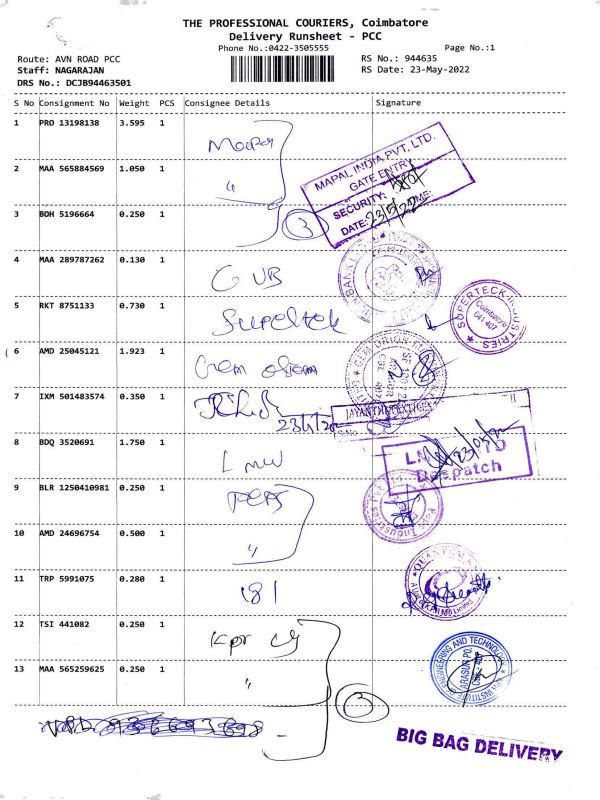 THE PROFESSIONAL COURIERS, Coimbatore
Delivery Runsheet - PCC
Phone No.:0422-3505555
Page No.:1
Route: AVN ROAD PCC
RS No.: 944635
Staff: NAGARAJAN
RS Date: 23-May-2022
DRS No.: DCJB94463501
S No Consignment No Weight PCS Consignee Details Signature
1 PRO 13198138 3.595 1
2 MAA 565884569 1.050 1 "
MAPAL INDIA PVT. LTD.
GATE ENTRY
SECURITY:
DATE: 23/5/22 TIME:
3 BDH 5196664 0.250 1 3
4 MAA 289787262 0.130 1 GUB
5 RKT 8751133 0.730 1 Supeltek
SUPERTECK INDUSTRIES
Coimbatore
641 407
6 AMD 25045121 1.923 1 Gem
7 IXM 501483574 0.350 1
8 BDQ 3520691 1.750 1 LMW
Despatch
9 BLR 1250410981 0.250 1
10 AMD 24696754 0.500 1 "
11 TRP 5991075 0.280 1 181
12 TSI 441082 0.250 1 Kpr
13 MAA 565259625 0.250 1 "
ENGINEERING AND TECHNOLOGY
3
BIG BAG DELIVERY